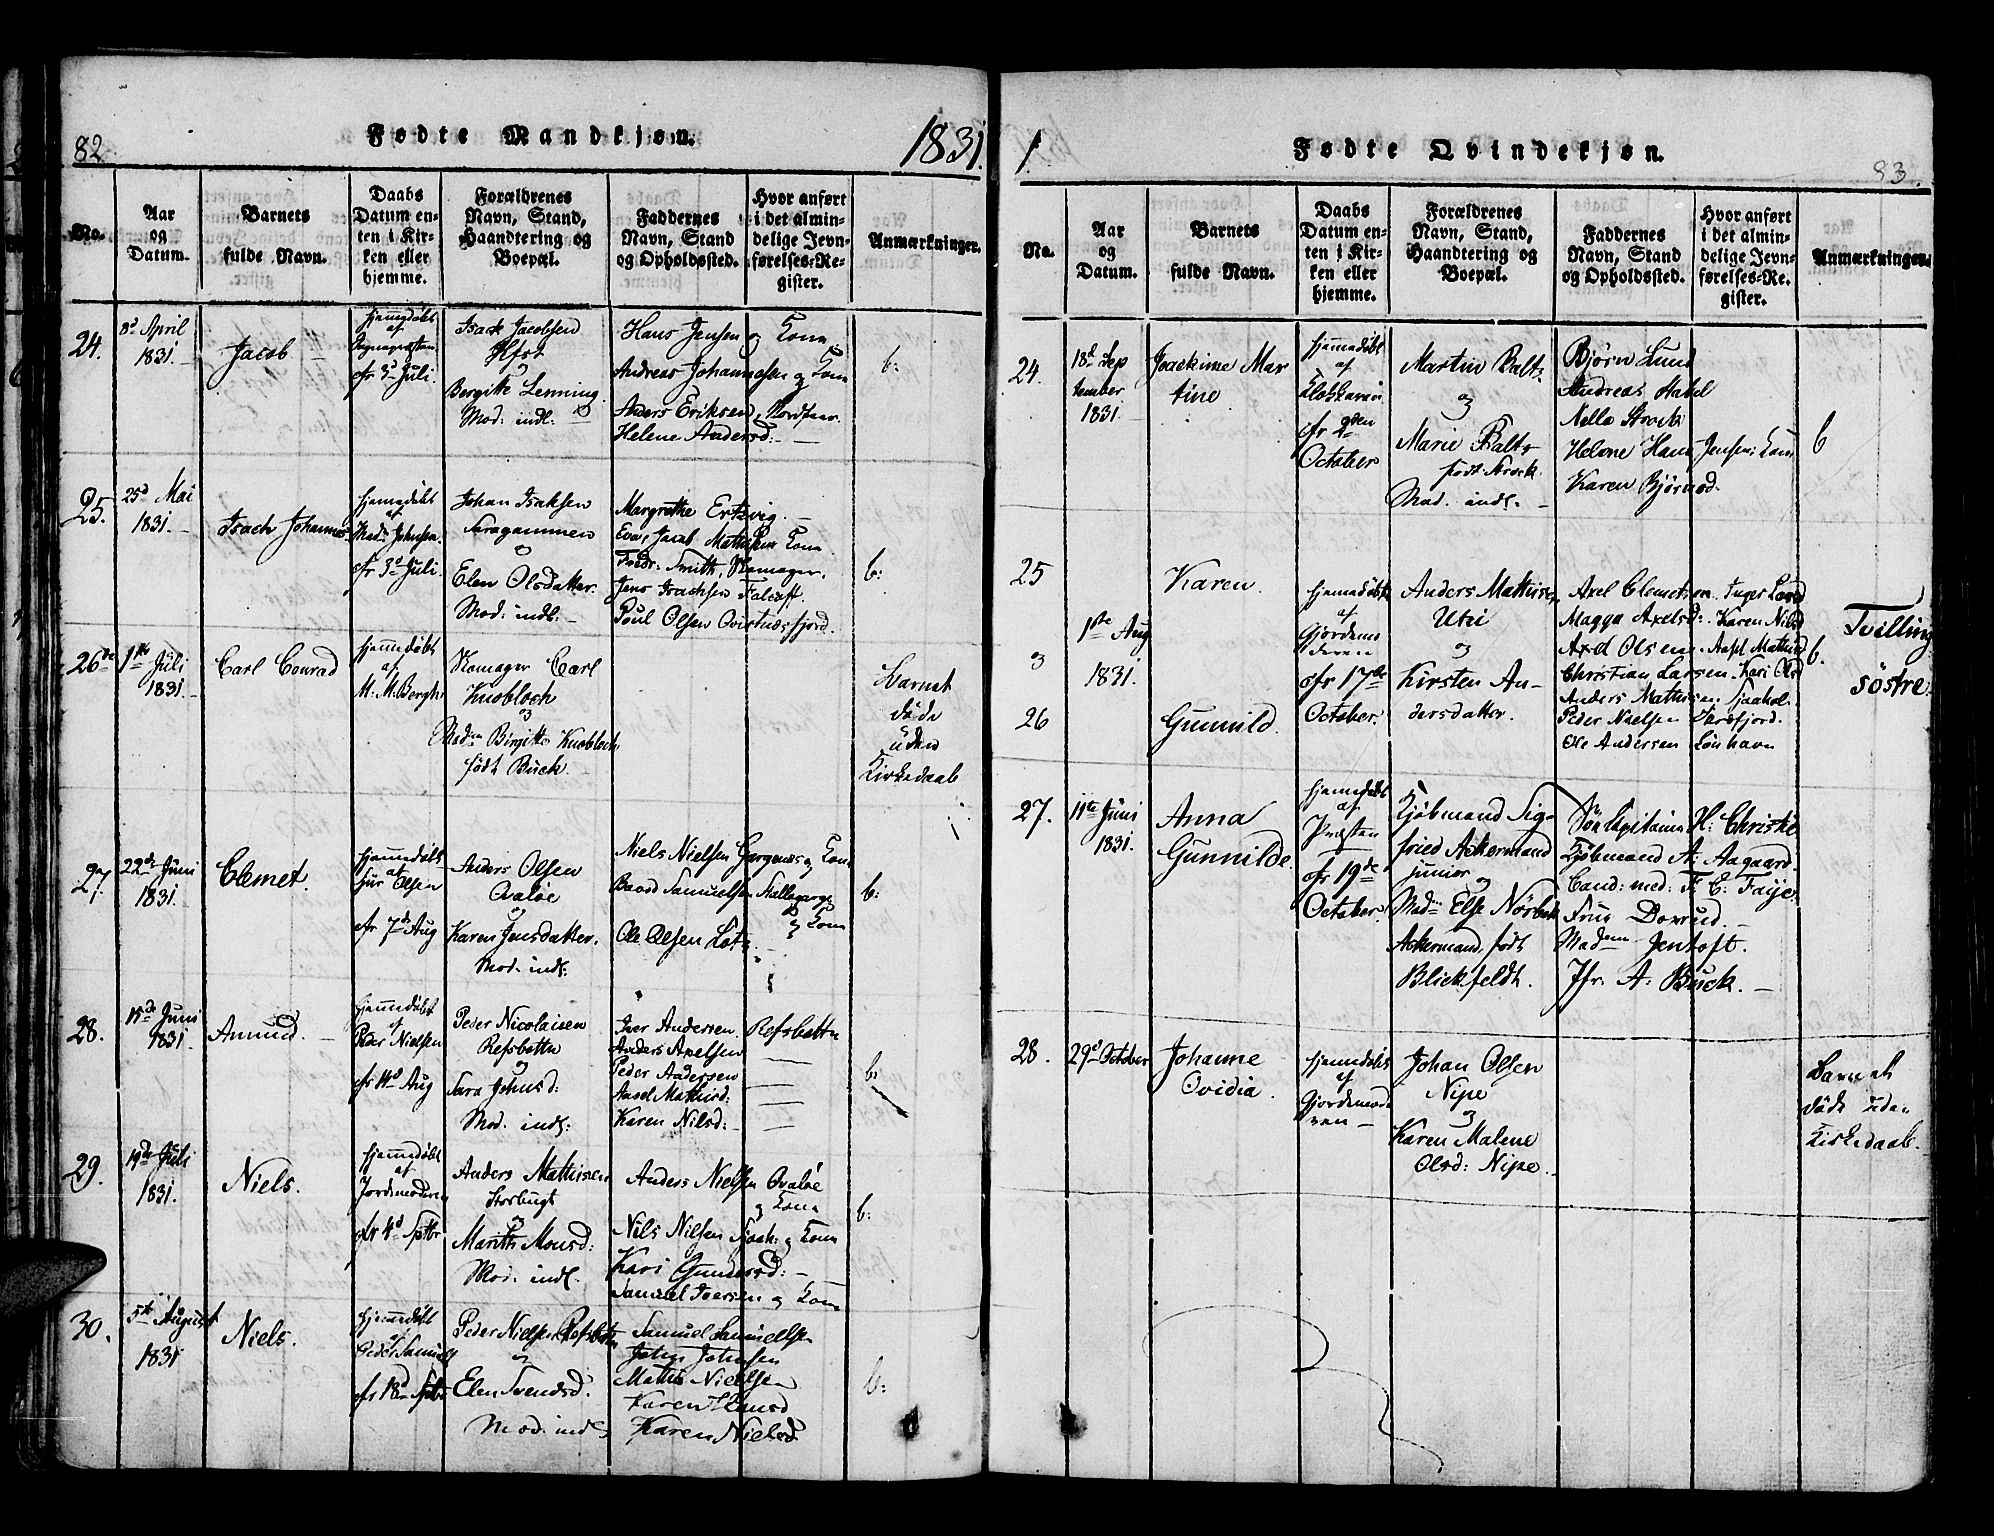 82.
Fødte Mandkjøn.
1831.
No.
Aar
og
Datum.
Barnets
fulde Navn.
Daabs
Datum en-
ten i Kir-
ken eller
hjemme.
Forældrenes
Navn, Stand,
Haandtering og
Boepæl.
Faddernes
Navn, Stand
og Opholdssted.
Hvor anført
i det almin-
delige Jevn-
førelses-Re-
gister.
Anmærkninger.
24.
April
1831.
Jacob
hjemedøbt
af
cfr 3d Juli.
Isack Jacobsen
og
Bergitte Lenning.
Mod: indl:
Hans Jensen og Kone
Andreas Johannesen og Kone
Anders Eriksen,
Helene Andersd:
b:
25.
25d Mai
1831.
Isach Johannes
hjemedøbt
af
cfr 3d Juli.
Johan Isaksen
og
Elen Olsdatter.
Mod: indl:
Margrethe Ertzvig.
Eva, Jacob Mathisens Kone
Fredr: Smith, Komager.
Jens Isachsen Falcaft.
Poul Olsen Qvistnæsfjord.
b:
26de
1te Juli
1831.
Carl Conrad
hjemedøbt
af
M. M. Bergh.
Komager Carl
Knobloch
og
Madm Birgitte Knobloch
født Buck.
Barnet
døde
uden
Kirkedaab
27.
22de Juni
1831.
Clemet.
hjemedøbt
af
Olsen
cfr 7de Aug
Anders Olsen
Qvaløe
og
Karen Jensdatter.
Mod: indl:
Niels Nielsen Gargenæs og Kone
Baard Samuelsen Skallogarge
og Kone
Ole Olsen Lotz.
b:
28.
15de Juni
1831.
Amund.
hjemedøbt
af
Peder Nielsen
cfr 14d Aug
Peder Nicolaisen
Refsbotten
og
Sara Johnsd:
Mod: indl:
Iver Andersen Refsbotten
Anders Axelsen
Peder Andersen
Axsel Mathisd:
Karen Nilsd:
b:
29.
19de Juli
1831.
Niels.
hjemedøbt
af
Jordemoderen
cfr 4d Sptbr
Anders Mathisen
Storbugt
og
Marith Monsd:
Mod: indl.
Anders Nielsen Qvaløe
og Kone
Nils Nilsen og Kone
Kari Gundersd:
Samuel Iversen og Kone
b:
30.
5te August
1831
Niels.
hjemedøbt
af
Peder Samuels
cfr 18d Sptbr
Peder Nielsen Refsbotten
og
Elen Svendsd.
Mod: indl
Samuel Samuelsen
John Johnsen
Mathis Nielsen
Karen Hansd
Karen Nielsd
b:
1.
Fødte Qvindekjøn.
83.
No.
Aar
og
Datum.
Barnets
fulde Navn.
Daabs
Datum en-
ten i Kir-
ken eller
hjemme.
Forældrenes
Navn, Stand,
Haandtering og
Boepæl.
Faddernes
Navn, Stand
og Opholdssted.
Hvor anført
i det almin-
delige Jevn-
førelses-Re-
gister.
Anmærkninger.
24.
18d Sep
tember
1831.
Joackime Mar
tine
hjemedøbt
af
Klokkeren
cfr 9den
October
Martin Baltz
og
Marie Baltz
født Strock.
Mod. indl.
Bjørn Lund
Andreas Habel
Nella Strock
Helene Hans Jensens Kone
Karen Bjørnsd.
b
25
og
26
1te Aug
1831.
Karen.
Gunnild.
hjemedøbt
af
Gjordemo
deren
cfr 17de
October.
Anders Mathisen,
Utzi
og
Kirsten An-
dersdatter.
Axel Clemetsen. Inger Larsd
Magga Axelsd: Karen Nilsd
Axel Olsen. Axsel Mathisd
Christian Larsen. Kari Olsd
Anders Mathisen,
Peder Nielsen Torsfjord.
Ole Andersen Lønhavn
b.
Tvilling
søstre.
27.
11te Juni
1831.
Anna
Gunnilde.
hjemedøbt
af
Præsten
cfr 19de
October.
Kjøbmand Sig-
fried Ackermand
junior
og
Madm Else Nørbek
Ackermand, født
Blickfeldt.
Søe Capitaine H. Christie
Kjøbmand A: Aagaard.
Cand: med: F. C: Faye.
Frue Dorrud.
Madem Jentoft.
Jfr. A: Buck.
28.
29d October
Johanne
Ovidia.
hjemedøbt
af
Gjordemode
ren
Johan Olsen
Nipe
og
Karen Malene
Olsd: Nipe.
Barnet
døde uden
Kirkedaab.